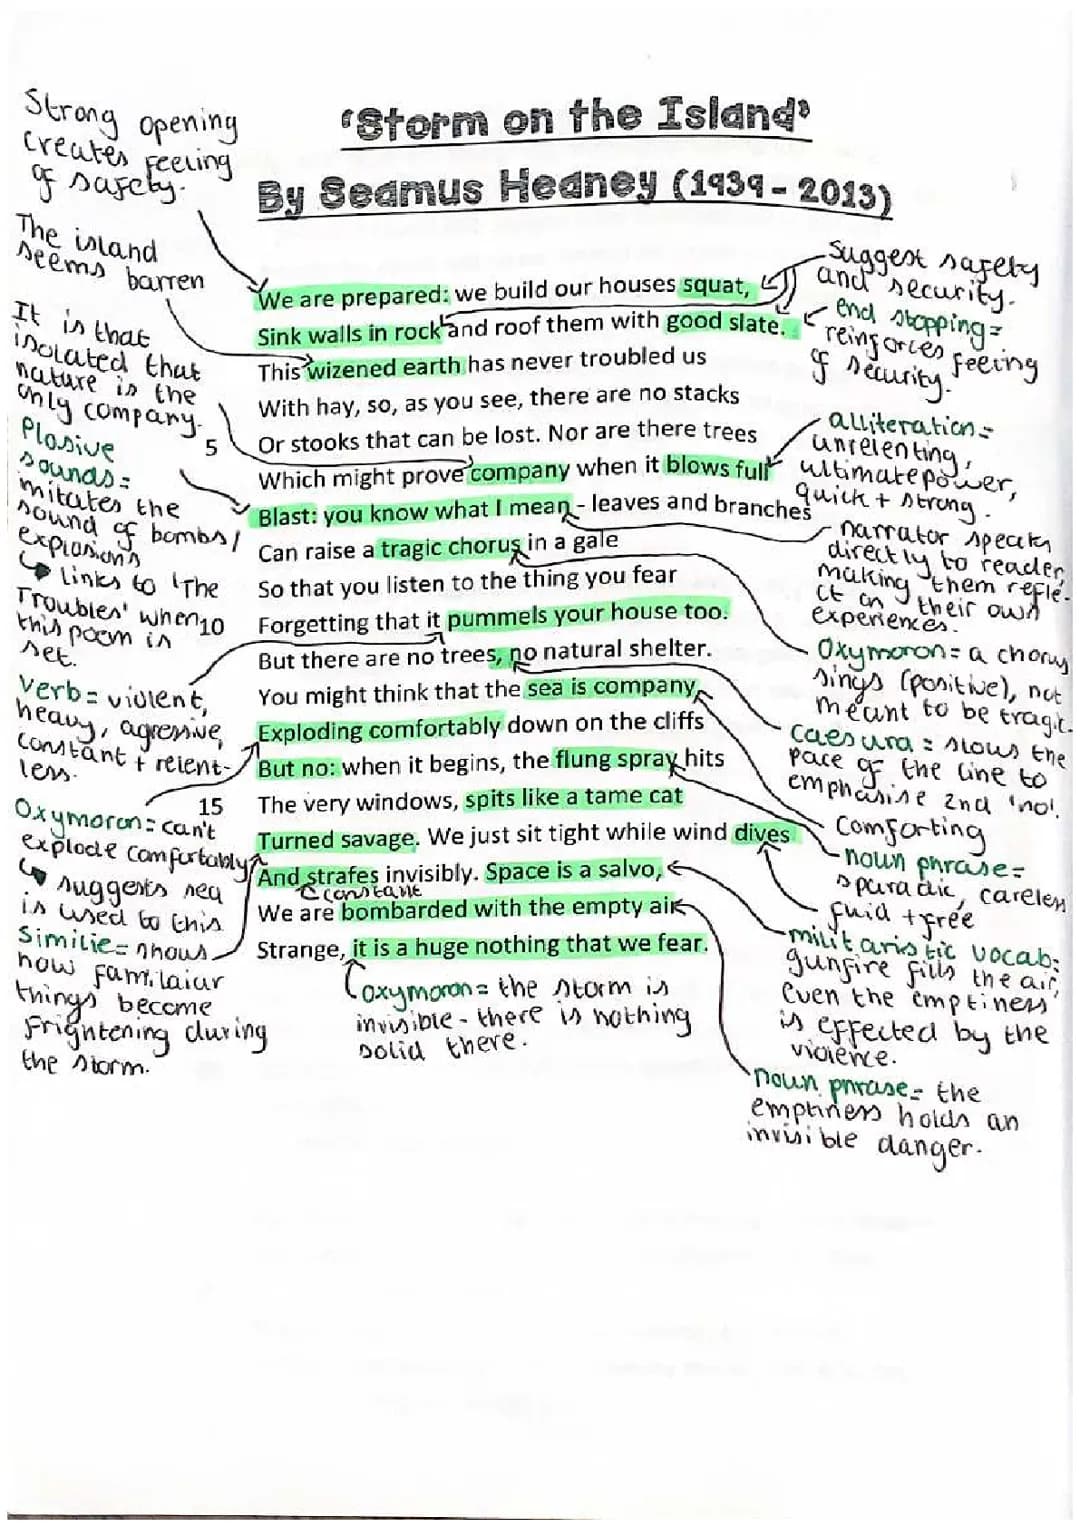 'Storm on the Island'
By Seamus Heaney (1939 - 2013)
Strong opening
creates feeling
of safety.
The island
seems barren
It is that
isolated that
nature is the
only company.
Plosive
sounds=
mitates the
sound of bombs/
explosions
↳ links to 'The
Troubles' when
this poem is
set.
Verb= violent,
heavy, agressive,
constant + relent-
less.
Oxymoron= can't
explode comfortably
↳ suggests sea
is used to this
Similie= shows
how familaiar
things become
frightening during
the storm.
We are prepared: we build our houses squat,
Sink walls in rock and roof them with good slate.
This wizened earth has never troubled us
With hay, so, as you see, there are no stacks
5 Or stooks that can be lost. Nor are there trees
Which might prove company when it blows full
Blast: you know what I mean - leaves and branches
Can raise a tragic chorus in a gale
So that you listen to the thing you fear
10 Forgetting that it pummels your house too.
But there are no trees, no natural shelter.
You might think that the sea is company,
Exploding comfortably down on the cliffs
But no: when it begins, the flung spray hits
15 The very windows, spits like a tame cat
Turned savage. We just sit tight while wind dives
And strafes invisibly. Space is a salvo,
constant
We are bombarded with the empty air
Strange, it is a huge nothing that we fear.
oxymoron= the storm is
invisible - there is nothing
solid there.
Suggest safety
and security.
end stopping=
reinforces feeling
of security.
alliteration=
unrelenting,
ultimate power,
quick + strong.
narrator speaks
directly to reader,
making them refle-
ct on their own
experiences.
Oxymoron= a chorus
sings (positive), not
meant to be tragic.
Caesura= slows the
pace of the line to
emphasise 2nd 'no'.
Comforting
noun phrase=
sparadic, careless
fluid + free
militaristic vocab:
gunfire fills the air,
Even the emptiness
is effected by the
violence.
noun phrase= the
emptiness holds an
invisible danger.